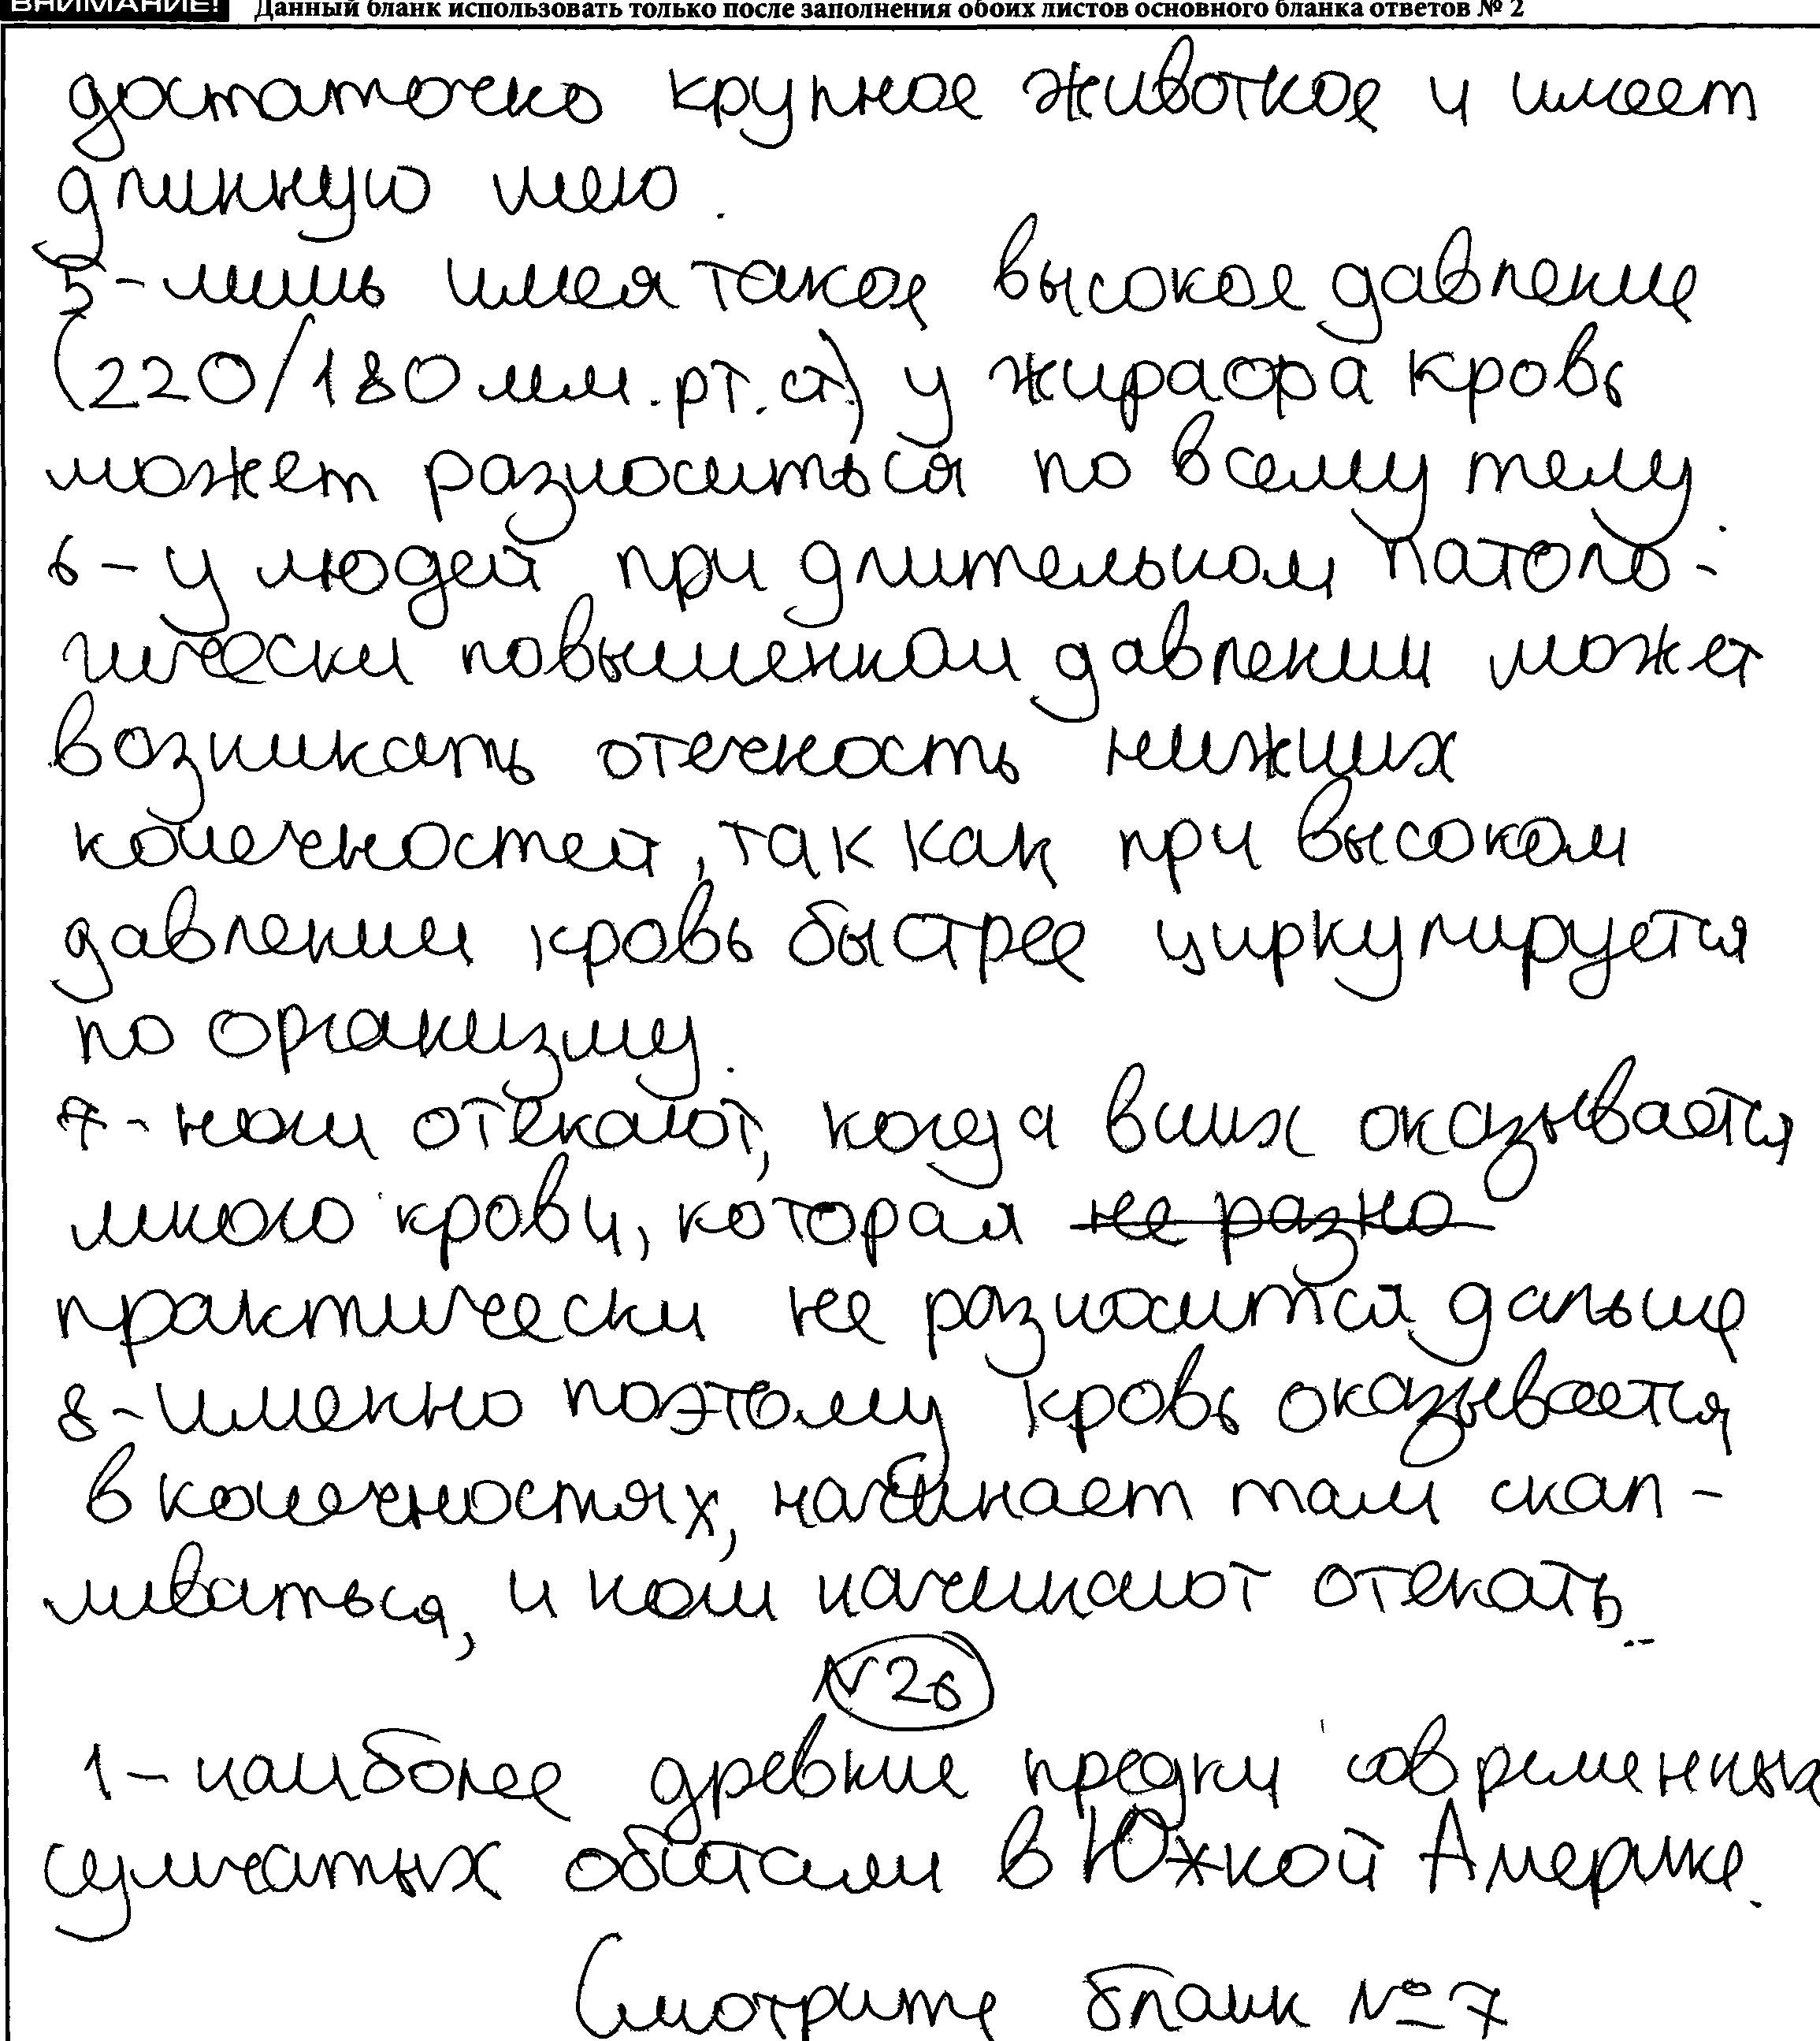 ВНИМАНИЕ! Данный бланк использовать только после заполнения обоих листов основного бланка ответов № 2
достаточно крупное животное и имеет
длинную шею.
5 - лишь имея такое высокое давление
(220/180 мм.рт.ст) у жирафа кровь
может разноситься по всему телу.
6 - у людей при длительном патоло-
гически повышенном давлении может
возникать отечность нижних
конечностей, так как при высоком
давлении кровь быстрее циркулируется
по организму.
7 - ноги отекают, когда в них оказывается
много крови, которая не разно
практически не разносится дальше
8 - именно поэтому кровь оказывается
в конечностях, начинает там скап-
ливаться, и ноги начинают отекать.
№26
1 - наиболее древние предки современных
сумчатых обитали в Южной Америке.
Смотрите бланк №7